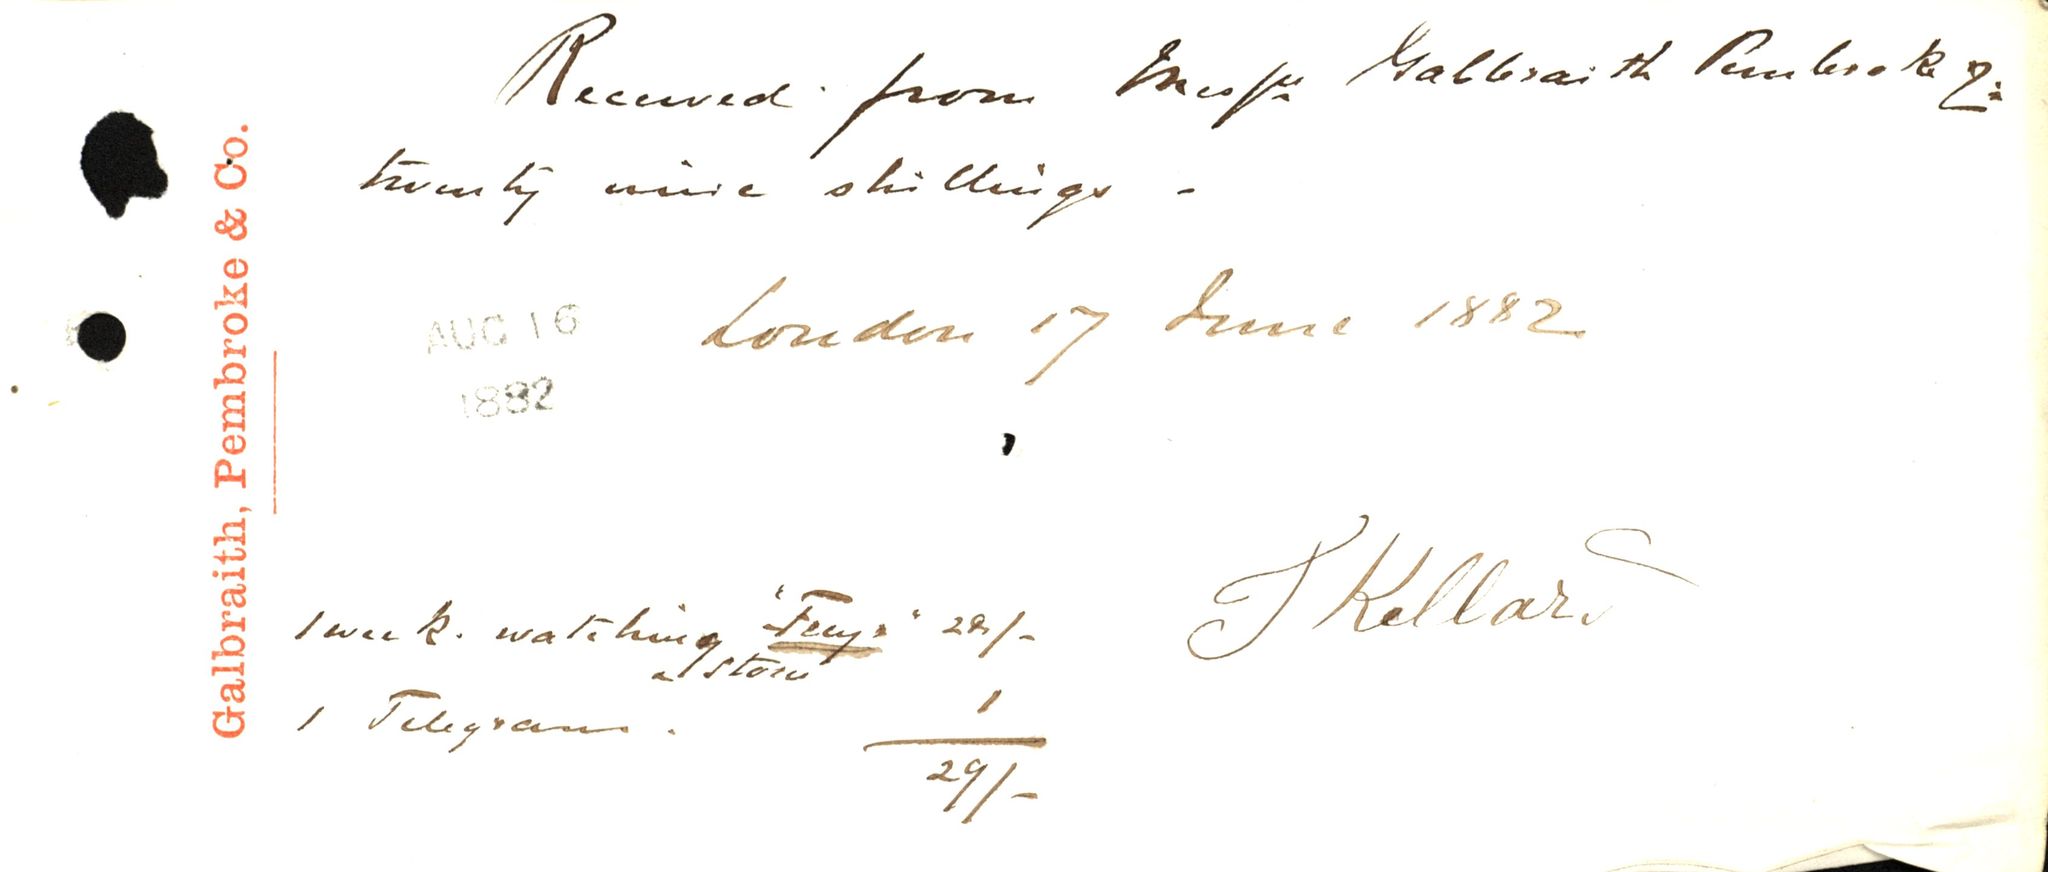 Galbraith, Pembroke & Co.
Received from Messrs Galbraith Pembroke
twenty nine shillings -
AUG 16
1882
London 17 June 1882
1 week watching 28/-
1 Telegram. 1
29/-